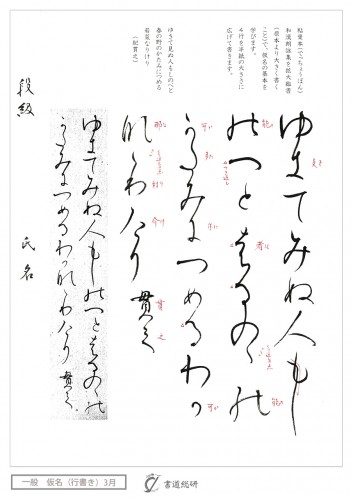 粘葉本(でっちょうぼん)
和漢朗詠集を拡大臨書
(原本より大きく書く
こと)で、仮名の基本を
学びます。
4行を半紙の大きさに
広げて書きます。
ゆきて見ぬ人もしのべと
春の野のかたみにつめる
若菜なりけり
(紀貫之)
ゆきてみぬ人もし
のへとはるのゝの
かたみにつめるわか
なゝりけり 貫之
ゆきてみぬ人もしのへとはるのゝの
かたみにつめるわかなゝりけり 貫之
段級
氏名
一般 仮名(行書き)3月
書道総研